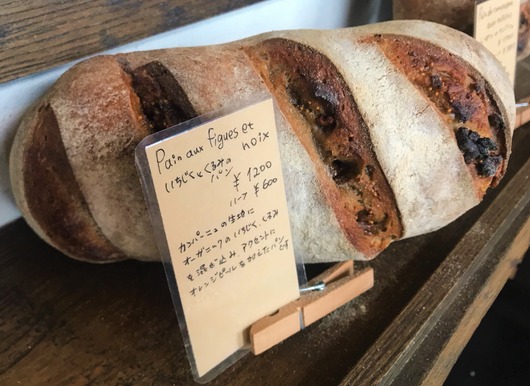 Pain aux figues et
noix
いちじくとくるみの
パン
¥1200
ハーフ ¥600
カンパーニュの生地に
オーガニックのいちじく、くるみ
を混ぜ込み、アクセントに
オレンジピールを加えたパンです